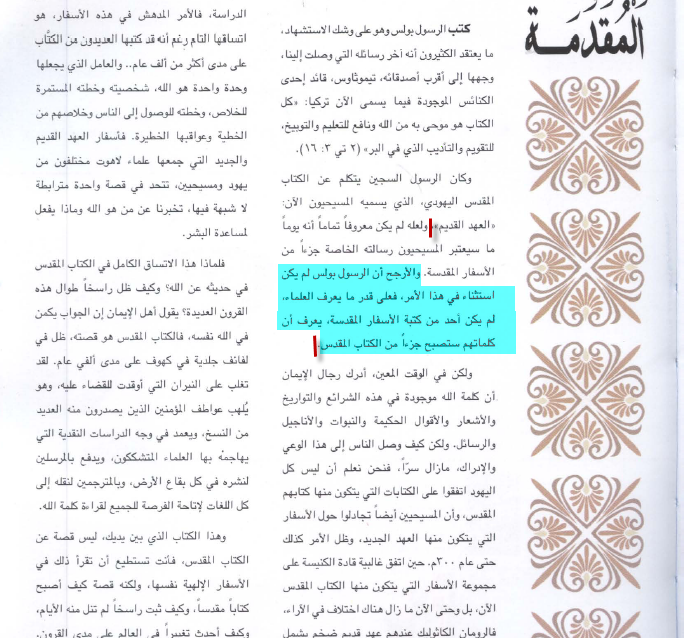 المُقدمة
كتب الرسول بولس وهو على وشك الاستشهاد،
ما يعتقد الكثيرون أنه آخر رسائله التي وصلت إلينا،
وجهها إلى أقرب أصدقائه، تيموثاوس، قائد إحدى
الكنائس الموجودة فيما يسمى الآن تركيا: «كل
الكتاب هو موحى به من الله ونافع للتعليم والتوبيخ،
للتقويم والتأديب الذي في البر» (٢ تي ٣: ١٦).
وكان الرسول السجين يتكلم عن الكتاب
المقدس اليهودي، الذي يسميه المسيحيون الآن:
«العهد القديم»، ولعله لم يكن معروفاً تماماً أنه يوماً
ما سيعتبر المسيحيون رسالته الخاصة جزءاً من
الأسفار المقدسة. والأرجح أن الرسول بولس لم يكن
استثناء في هذا الأمر، فعلى قدر ما يعرف العلماء،
لم يكن أحد من كتبة الأسفار المقدسة، يعرف أن
كلماتهم ستصبح جزءاً من الكتاب المقدس.
ولكن في الوقت المعين، أدرك رجال الإيمان
أن كلمة الله موجودة في هذه الشرائع والتواريخ
والأشعار والأقوال الحكيمة والنبوات والأناجيل
والرسائل. ولكن كيف وصل الناس إلى هذا الوعي
والإدراك، مازال سرّاً، فنحن نعلم أن ليس كل
اليهود اتفقوا على الكتابات التي يتكون منها كتابهم
المقدس، وأن المسيحيين أيضاً تجادلوا حول الأسفار
التي يتكون منها العهد الجديد، وظل الأمر كذلك
حتى عام ٣٠٠م. حين اتفق غالبية قادة الكنيسة على
مجموعة الأسفار التي يتكون منها الكتاب المقدس
الآن، بل وحتى الآن ما زال هناك اختلاف في الآراء،
فالرومان الكاثوليك عندهم عهد قديم ضخم يشمل
الدراسة، فالأمر المدهش في هذه الأسفار، هو
اتساقها التام رغم أنه قد كتبها العديدون من الكتَّاب
على مدى أكثر من ألف عام.. والعامل الذي يجعلها
وحدة واحدة هو الله، شخصيته وخطته المستمرة
للخلاص، وخطته للوصول إلى الناس وخلاصهم من
الخطية وعواقبها الخطيرة. فأسفار العهد القديم
والجديد التي جمعها علماء لاهوت مختلفون من
يهود ومسيحيين، تتحد في قصة واحدة مترابطة
لا شبهة فيها، تخبرنا عن من هو الله وماذا يفعل
لمساعدة البشر.
فلماذا هذا الاتساق الكامل في الكتاب المقدس
في حديثه عن الله؟ وكيف ظل راسخاً طوال هذه
القرون العديدة؟ يقول أهل الإيمان إن الجواب يكمن
في الله نفسه، فالكتاب المقدس هو قصته، ظل في
لفائف جلدية في كهوف على مدى ألفي عام. لقد
تغلب على النيران التي أوقدت للقضاء عليه، وهو
يُلهب عواطف المؤمنين الذين يصدرون منه العديد
من النسخ، ويعمد في وجه الدراسات النقدية التي
يهاجمهُ بها العلماء المتشككون، ويدفع بالمرسلين
لنشره في كل بقاع الأرض، وبالمترجمين لنقله إلى
كل اللغات لإتاحة الفرصة للجميع لقراءة كلمة الله.
وهذا الكتاب الذي بين يديك، ليس قصة عن
الكتاب المقدس، فأنت تستطيع أن تقرأ ذلك في
الأسفار الإلهية نفسها، ولكنه قصة كيف أصبح
كتاباً مقدساً، وكيف ثبت راسخاً لم تنل منه الأيام،
وكيف أحدث تغييراً في العالم على مدى القرون.